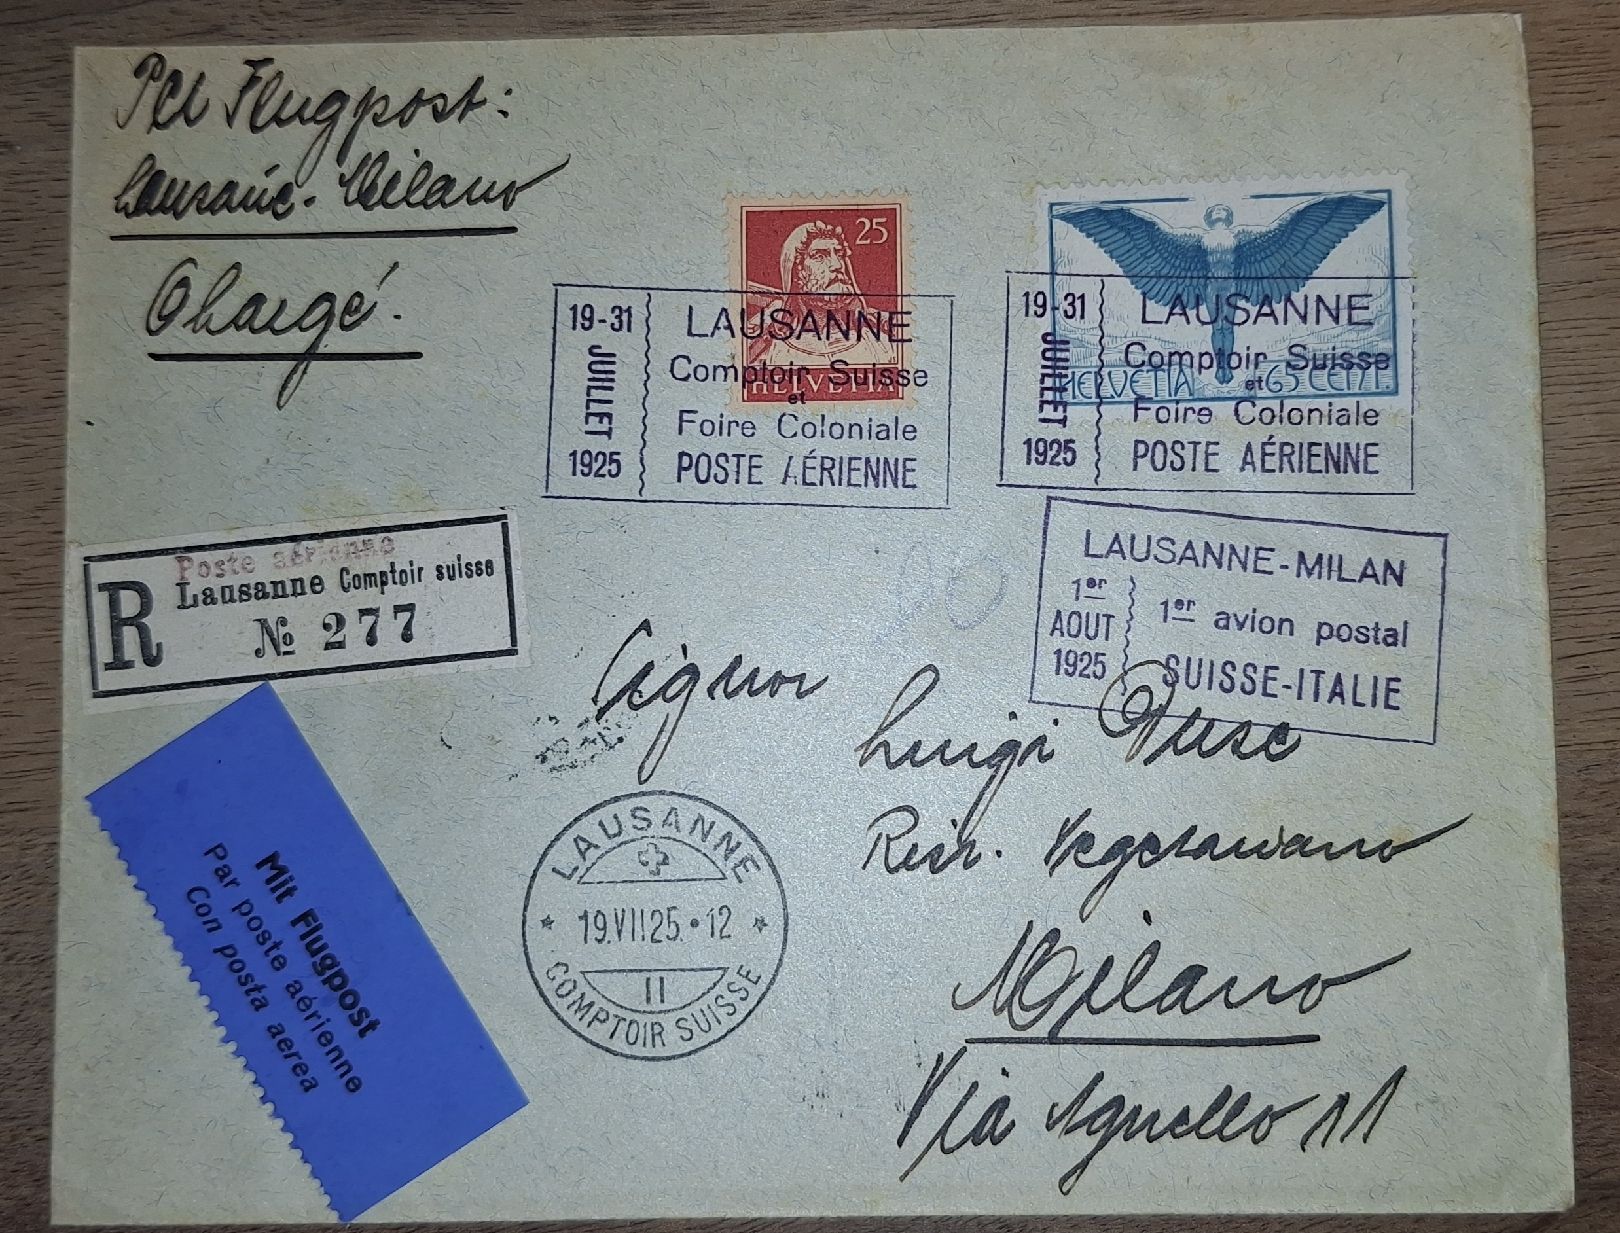 Per Flugpost:
Lausanne-Milano
Chargé.
25
HELVETIA
HELVETIA 65 CENT.
19-31
JUILLET
1925
LAUSANNE
Comptoir Suisse
et
Foire Coloniale
POSTE AÉRIENNE
19-31
JUILLET
1925
LAUSANNE
Comptoir Suisse
et
Foire Coloniale
POSTE AÉRIENNE
LAUSANNE-MILAN
1er
AOUT
1925
1er avion postal
SUISSE-ITALIE
R
Poste aérienne
Lausanne Comptoir suisse
№ 277
Signor
Luigi
Rist. Vegetariano
Milano
Via Agnello 11
LAUSANNE
19.VII25.•12
II
COMPTOIR SUISSE
Mit Flugpost
Par poste aérienne
Con posta aerea